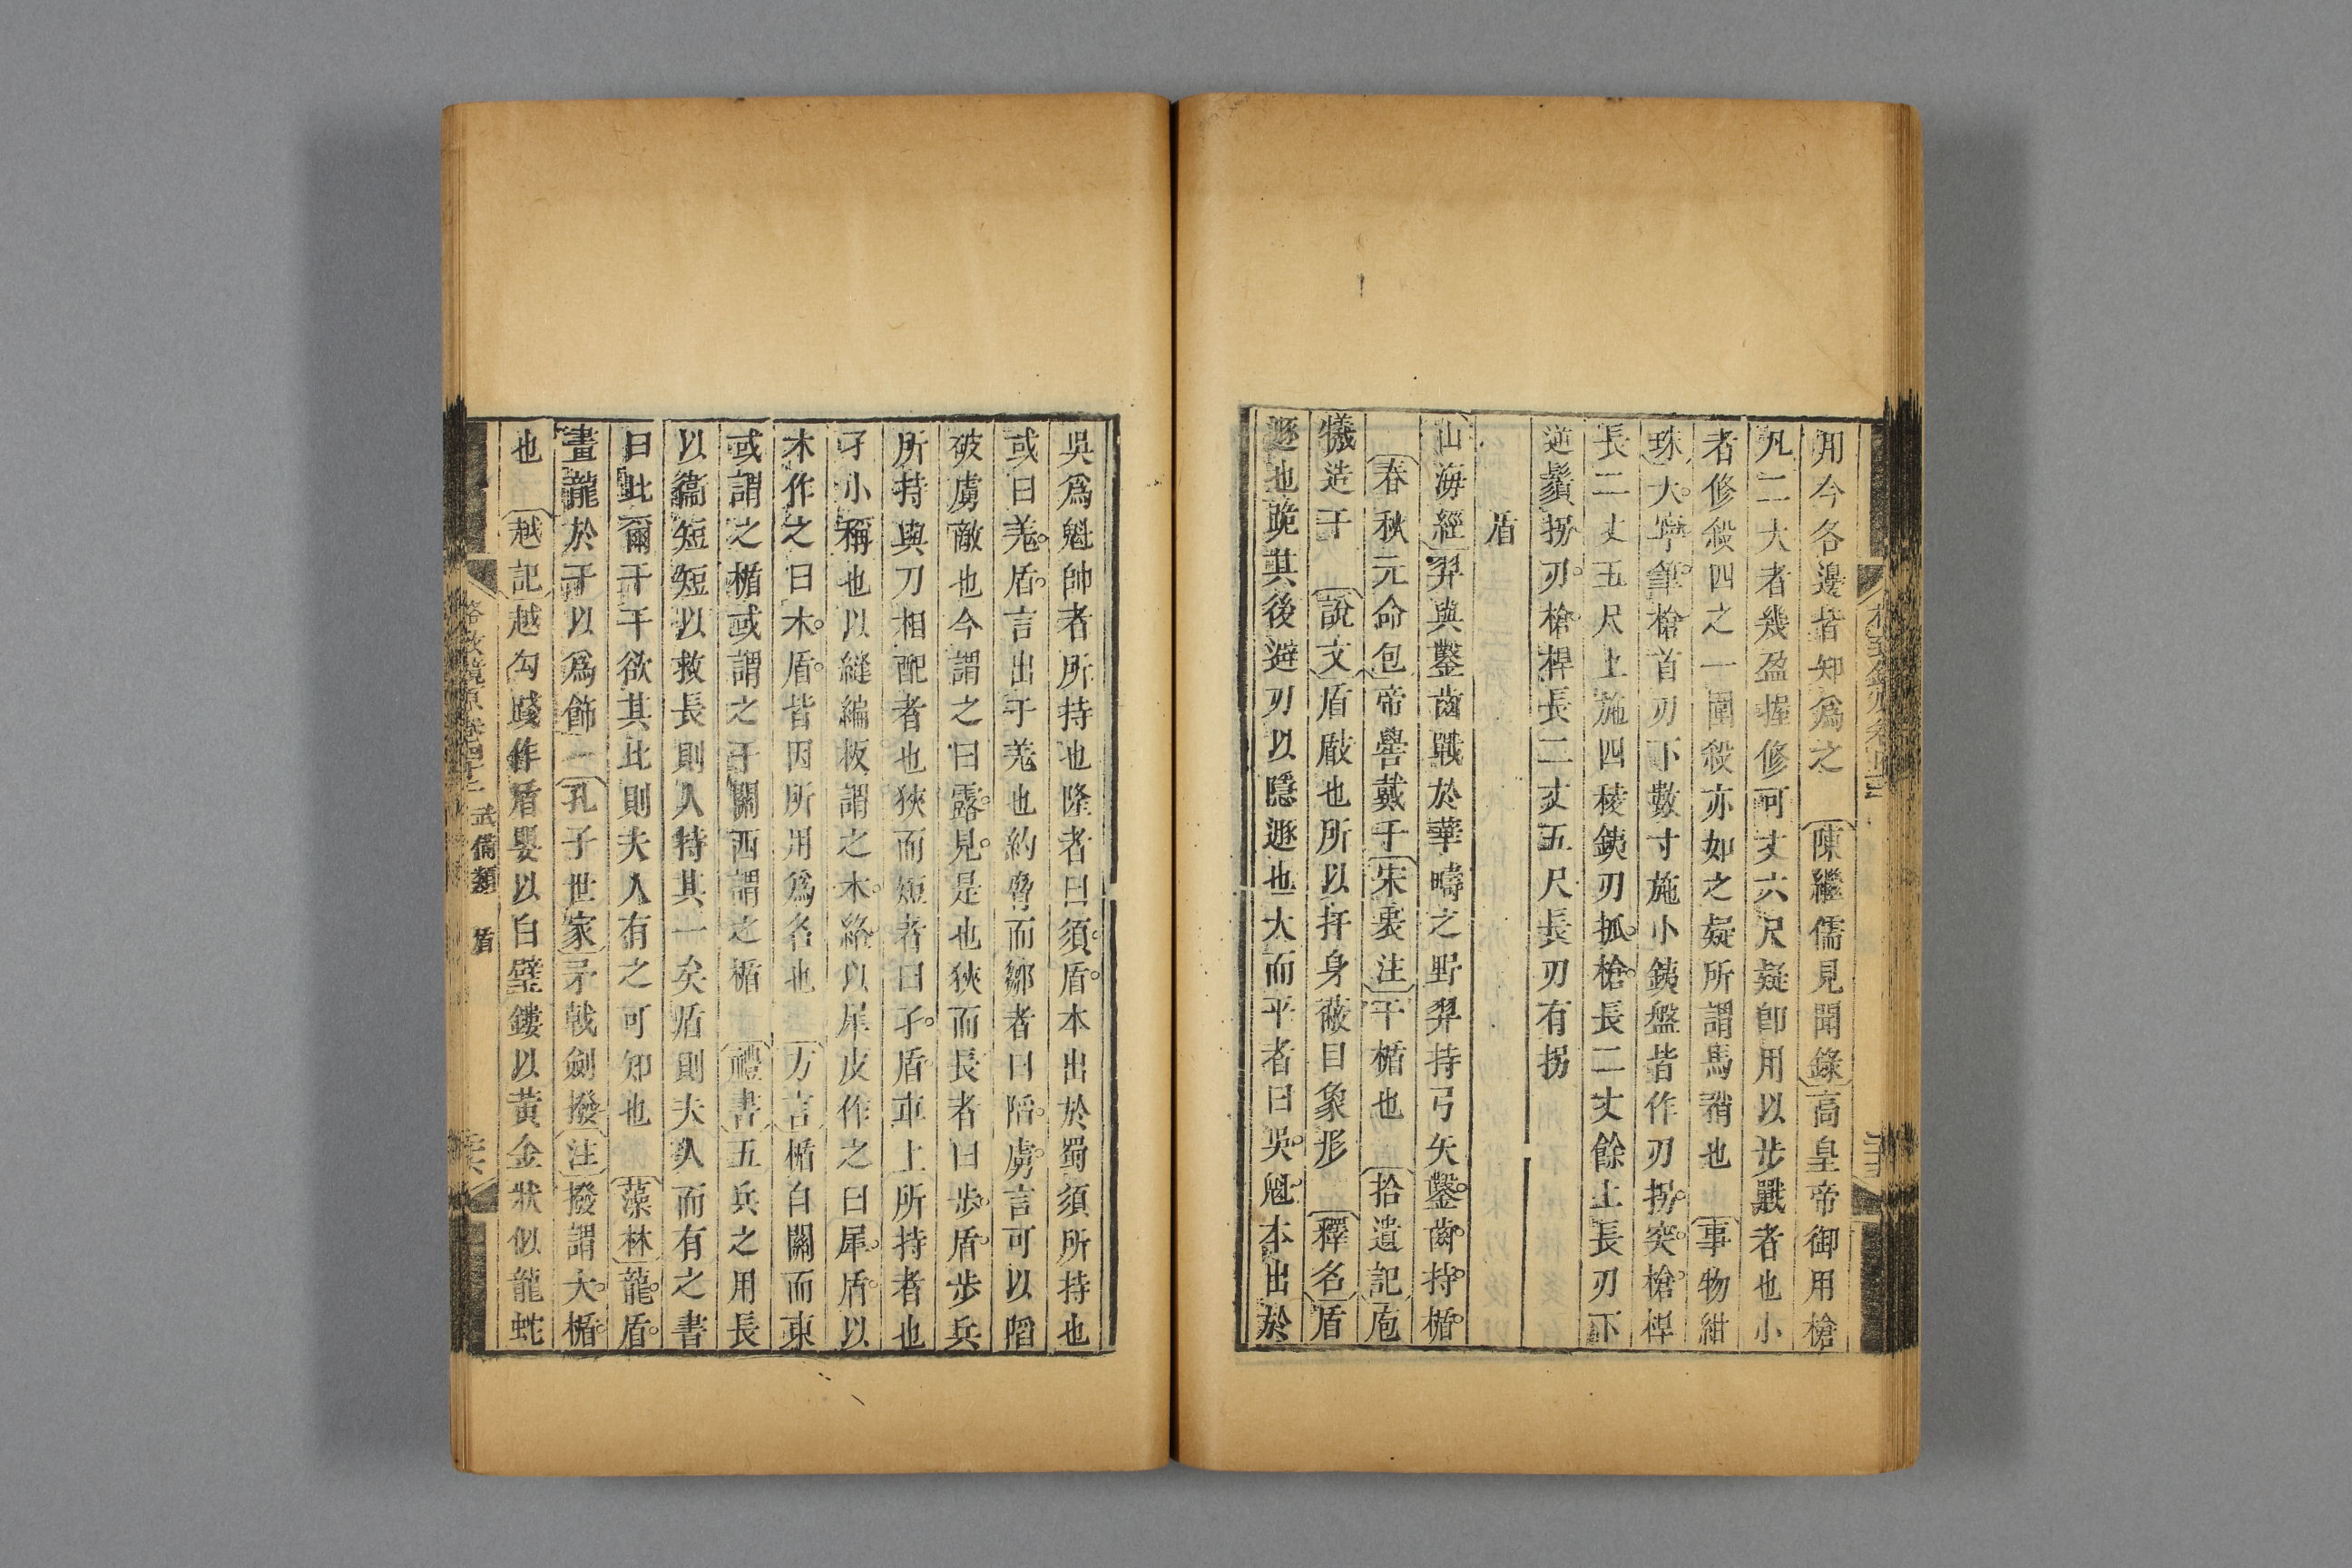 用今各邊皆知爲之　陳繼儒見聞錄高皇帝御用槍
凡二大者幾盈握修可丈六尺疑卽用以步戰者也小
者修殺四之一圍殺亦如之疑所謂馬矟也　事物紺
珠大寧筆槍首刃下數寸施小銕盤皆作刃拐突槍桿
長二丈五尺上施四稜銕刃抓槍長二丈餘上長刃下
逆鬚拐刃槍桿長二丈五尺長刃有拐
盾
山海經羿與鑿齒戰於華疇之野羿持弓矢鑿齒持楯
春秋元命包帝嚳戴干宋衷注干楯也　拾遺記庖
犧造干　說文盾瞂也所以扞身蔽目象形　釋名盾
遯也跪其後避刃以隱遯也大而平者曰吳魁本出於
吳爲魁帥者所持也隆者曰須盾本出於蜀須所持也
或曰羌盾言出于羌也約脅而鄒者曰陷虜言可以陷
破虜敵也今謂之曰露見是也狹而長者曰步盾步兵
所持與刀相配者也狹而短者曰孑盾車上所持者也
孑小稱也以縫編板謂之木絡以犀皮作之曰犀盾以
木作之曰木盾皆因所用爲名也　方言楯自關而東
或謂之楯或謂之干關西謂之楯　禮書五兵之用長
以衞短短以救長則人持其一矣盾則夫人而有之書
曰比爾干干欲其比則夫人有之可知也　藻林龍盾
畫龍於干以爲飾　孔子世家矛戟劍撥注撥謂大楯
也　越記越勾踐作盾嬰以白璧鏤以黃金狀似龍蛇
格致鏡原卷四十二　武備類　盾